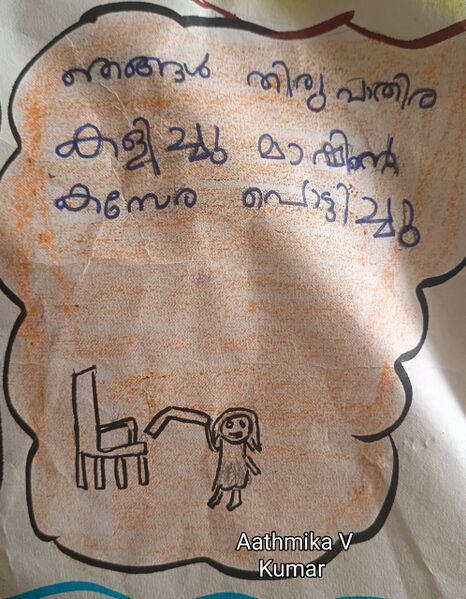 ഞങ്ങൾ തിരുവാതിര
കളിച്ചു മാഷിൻ്റെ
കസേര പൊട്ടിച്ചു
Aathmika V
Kumar